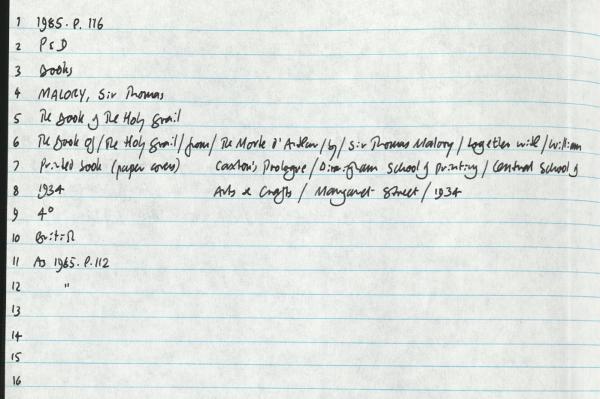 1 1985.P.116
2 P & D
3 Books
4 MALORY, Sir Thomas
5 The Book of The Holy Grail
6 The Book of / The Holy Grail / from / The Morte d'Arthur / by / Sir Thomas Malory / together with / William
7 Printed book (paper covers) Caxton's Prologue / Birmingham School of Printing / Central School of
8 1934 Arts & Crafts / Margaret Street / 1934
9 4°
10 British
11 As 1985.P.112
12 "
13
14
15
16